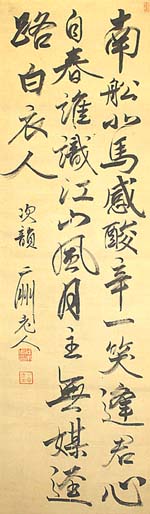 南船北馬感酸辛一笑逢君心
自春誰識江山風月主無媒逕
路白衣人
次韻 老人